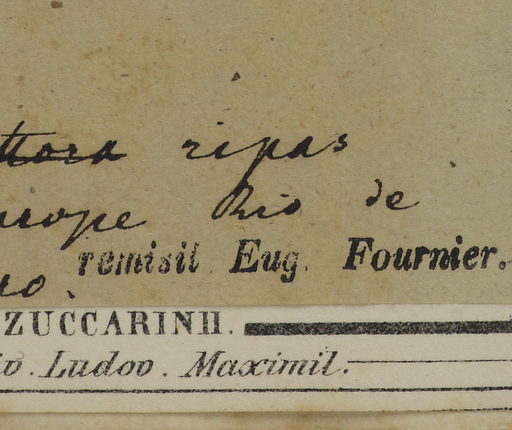 ripas
prope Rio de
remisit Eug. Fournier.
ZUCCARINII.
iv. Ludov. Maximil.